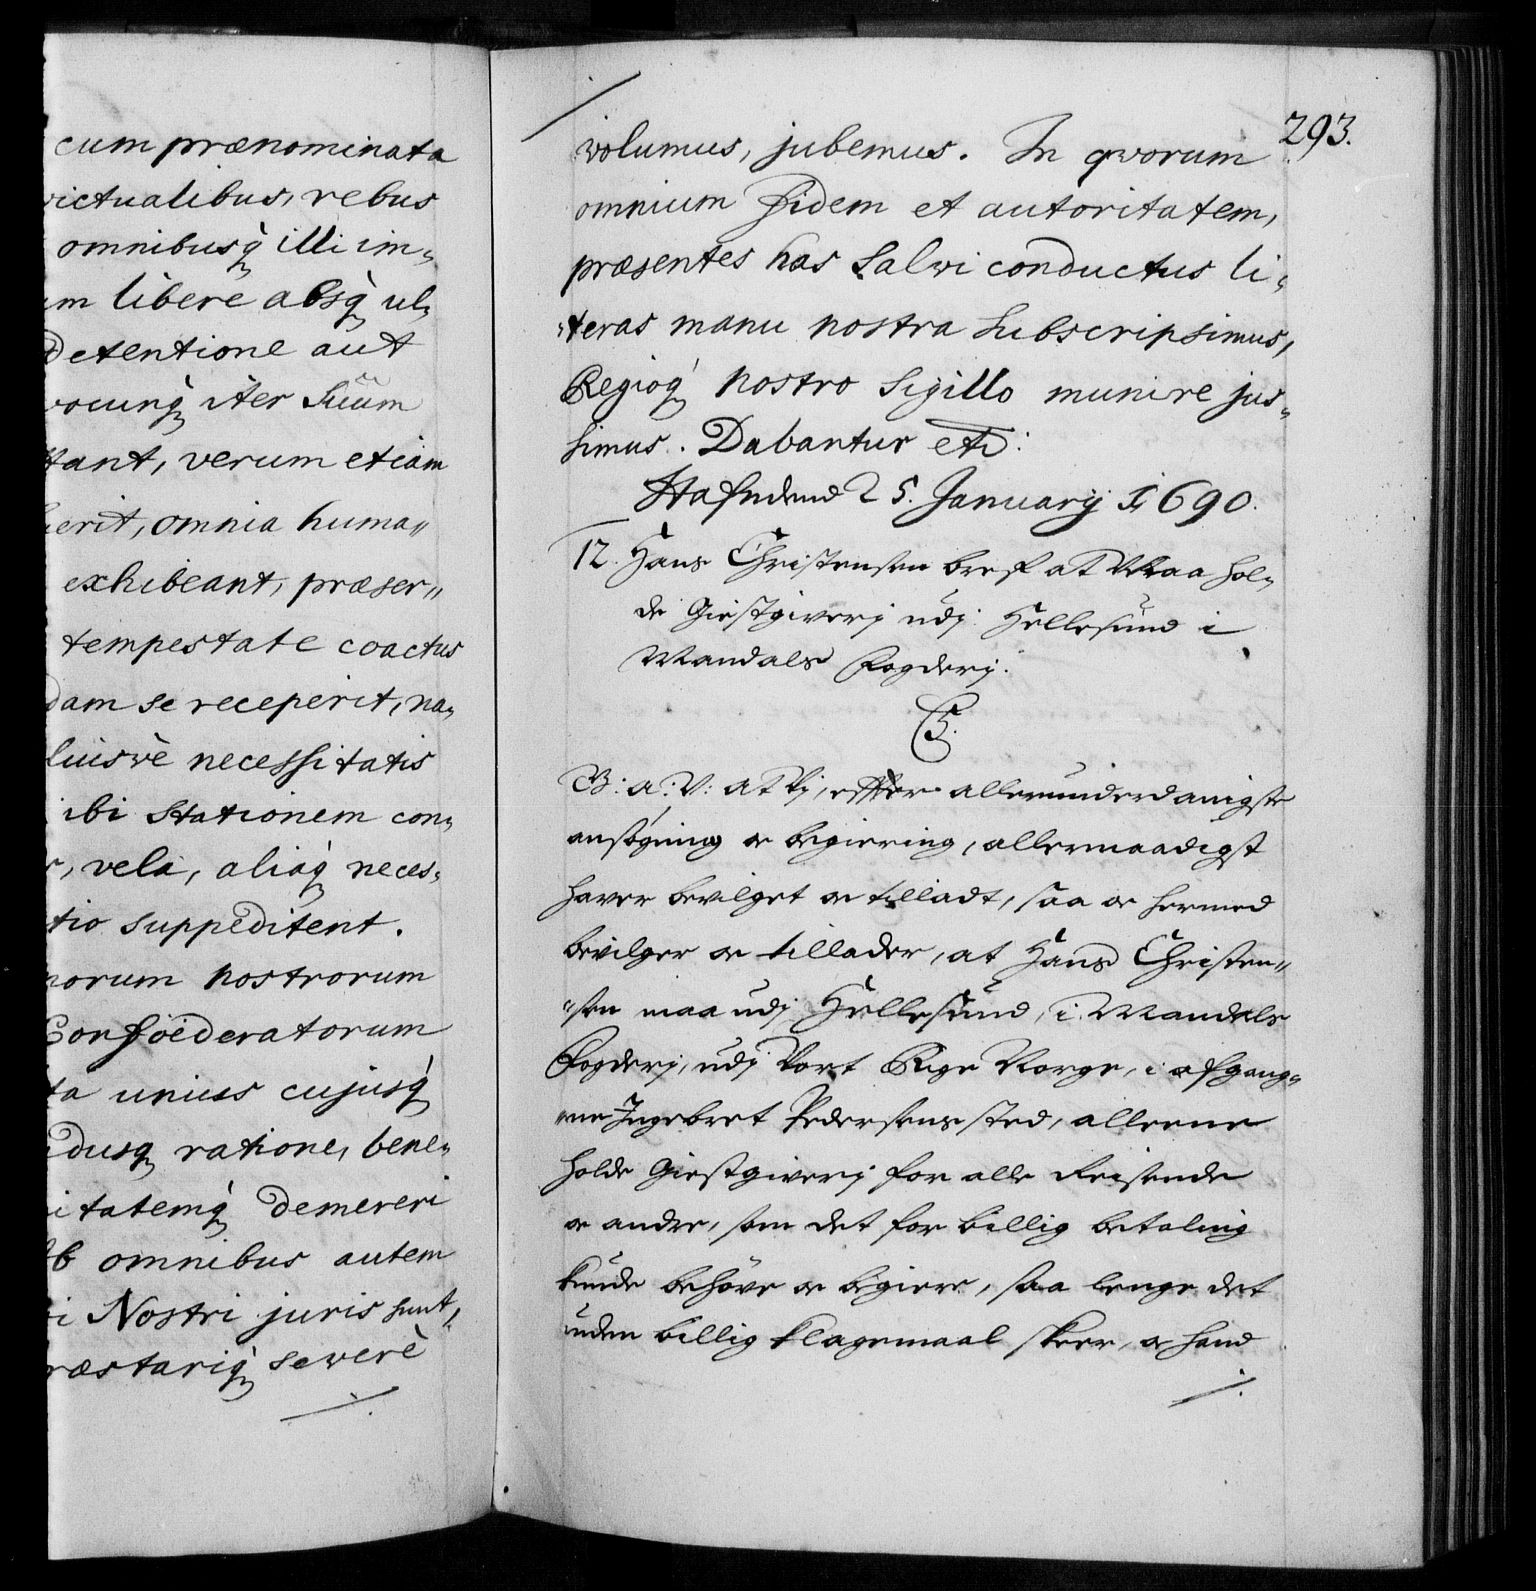 cum prænominata
victualibus, rebus
omnibusq̀ illi im„
um liberè absq̀ ul„
Detentione aut
vocunq̀ iter Suum
tant, verum etiam
erit, omnia huma„
exhibeant, præser„
tempestate coactus
dam se receperit, na„
liusvè necessitatis
ibi Stationem con„
r, vela, aliaq̀ neces„
tio suppeditent.
norum nostrorum
Confoederatorum
ta unius cujusq̀
dusq̀ ratione, bene„
itatemq̀ demereri
b omnibus autem
i Nostri juris sunt,
ræstariq̀ severè
./.
293.
volumus, jubemus. In qvorum
omnium Fidem et autoritatem,
præsentes has Salvi conductus li„
„teras manu nostra Subscripsimus,
Regioq̀ nostro Sigillo munire jus„
simus. Dabantur etc:
Hafn den d 25. Januarij 1690.
12. Hans Christensen bref at Maa hol„
de Giestgiverj udj Hellesund i
Mandals Fogderj.
C5.
G: a: V: at Vj, efter allerunderdanigste
ansøgning oc begiering, allernaadigst
hafver bevilget oc tilladt, saa oc hermed
bevilger oc tillader, at Hans Christen„
„sen maa udj Hellesund, i Mandals
Fogderj, udj Vort Rige Norge, i afgang„
„ne Ingebret Pedersens sted, alleene
holde Giestgiverj for alle Reisende
oc andre, som det for billig betaling
kunde behöve oc begiere, saa lenge det
uden billig Klagemaal skeer, oc hand
./.